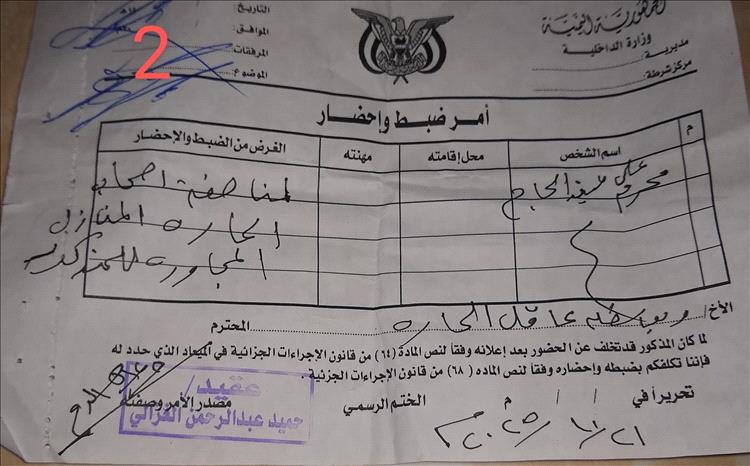 الجمهورية اليمنية
وزارة الداخلية
مديرية:
مركز شرطة:
التاريخ:
الموافق:
المرفقات:
الموضوع:
2
أمر ضبط وإحضار
م
اسم الشخص
محل إقامته
مهنته
الغرض من الضبط والإحضار
علي
الحاج
اصحاب
الحاره المنازل
المجاوره للمذكور
الأخ/ عاقل الحاره المحترم
لما كان المذكور قد تخلف عن الحضور بعد إعلانه وفقاً لنص المادة (٦٤) من قانون الإجراءات الجزائية في الميعاد الذي حدد له
فإننا نكلفكم بضبطه وإحضاره وفقاً لنص الماده (٦٨) من قانون الإجراءات الجزئية .
تحريراً في / / م
الختم الرسمي
مصدر الأمر وصفته
عقيد/
حميد عبدالرحمن الغزالي
٢١/١٠/٢٠٢٥م